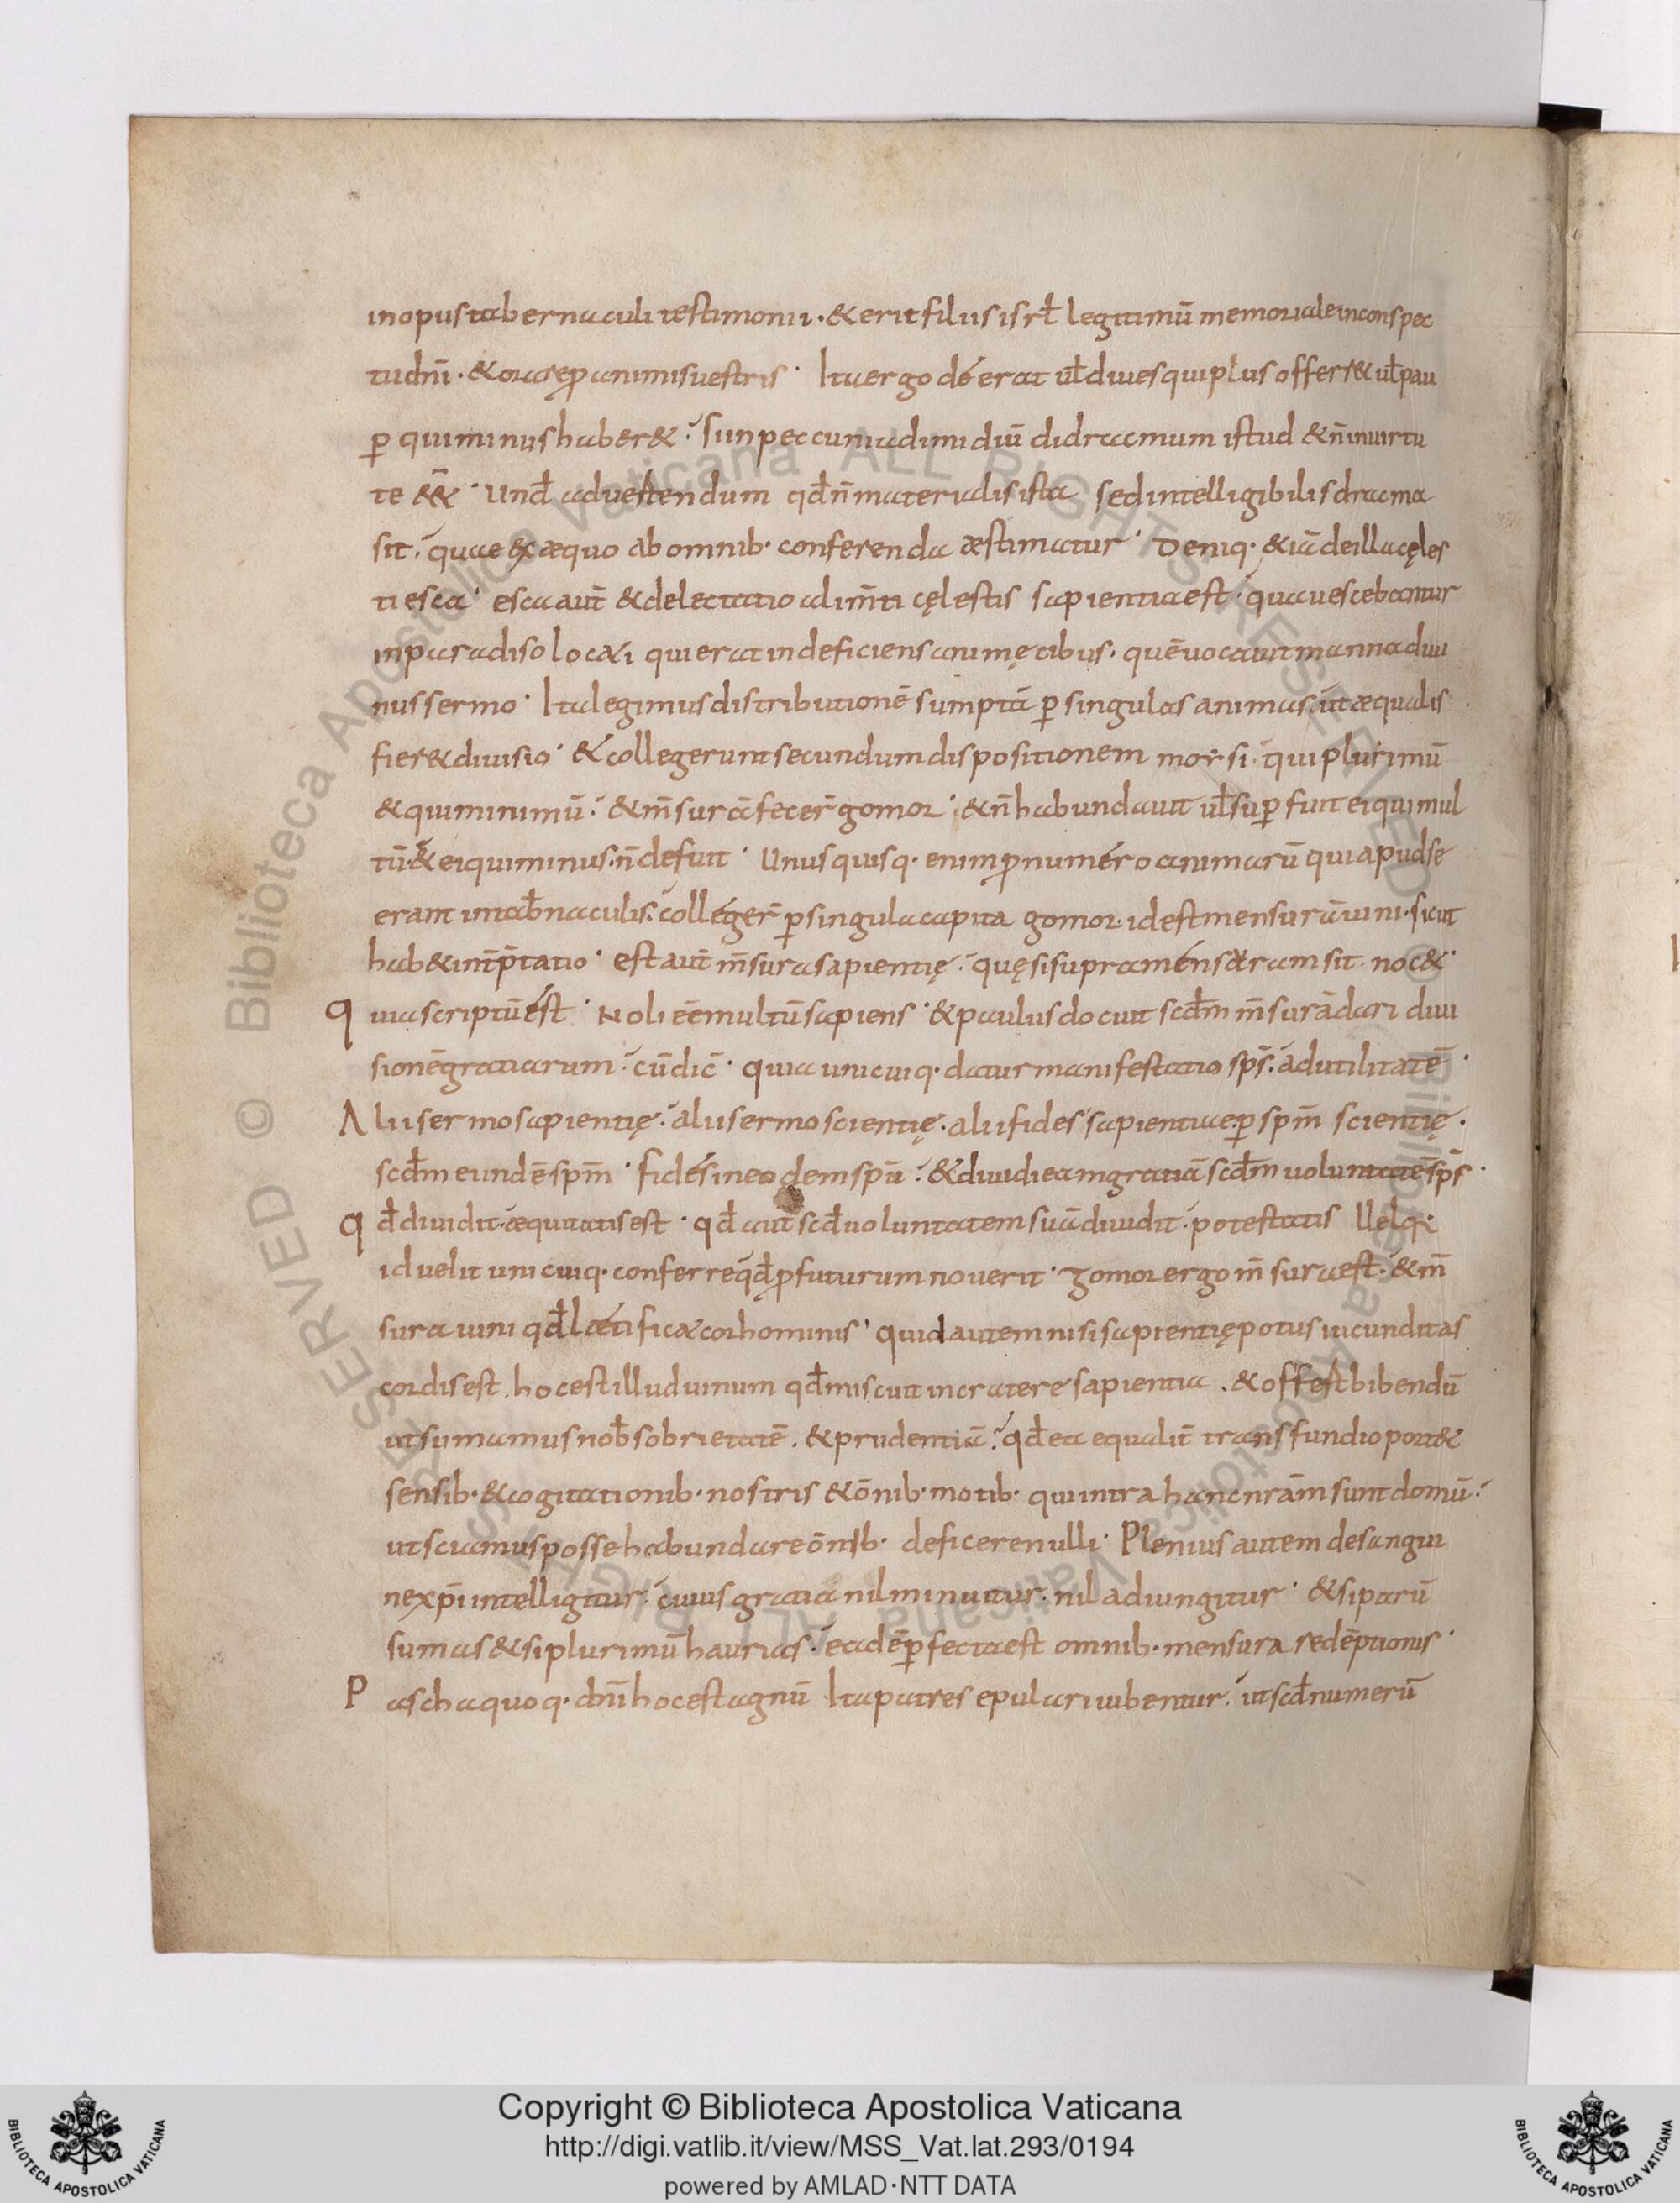 in opus tabernaculi testimonii · & erit filiis isrł legitimū memoriale in conspec
tu dn̄i · & orate ꝓ animis uestris · Ita ergo dō erat uł diues qui plus offerr& uł pau
ꝑ qui minus haber& · si in peccunia dimidiū didracmum istud & n̄ in uirtu
te e&̄ · Und̄ aduestendum qđ n̄ materialis ista sed intelligibilis dracma
sit · quae ex aequo ab omnib· conferenda aestimatur · Deniq· &iā de illa cęles
ti esca · esca aut̄ & delectatio alim̄ti cęlestis sapientia est · qua uescebantur
in paradiso locati qui erat indeficiens animę cibus · quē uocauit manna diui
nus sermo · Ita legimus distributionē sumptā ꝑ singulas animas ut aequalis
fier& diuisio · & collegerunt secundum dispositionem morsi · qui plurimū
& qui minimū · & m̄surā fecer̄ gomor · & n̄ habundauit uł suꝑfuit ei qui mul
tū · & ei qui minus · n̄ defuit · Unusquisq· enim ꝓ numero animarū qui apud se
erant in tab̄naculis · colleger̄ ꝑ singula capita gomor · id est mensurā uini · sicut
hab& int̄p̄tatio · est aut̄ m̄sura sapientię · quę si supra mensuram sit · noc& ·
Quia scriptū est · Noli eē multū sapiens · & paulus docuit scđm m̄surā dari diui
sionē gratiarum · cū dic̄ · quia unicuiq· datur manifestatio sp̄s · ad utilitatē ·
Alii sermo sapientię · alii sermo scientię · alii fides sapientiae ꝑ sp̄m scientię ·
scđm eundē sp̄m · fides in eodem sp̄u · & diuidi eam gratiā scđm uoluntatē sp̄s ·
Qđ diuidit · aequitatis est · qđ aut̄ scđ uoluntatem suā diuidit · potestatis Uel q̄
id uelit unicuiq· conferre qđ ꝓfuturum nouerit · Gomor ergo m̄sura est · & m̄
sura uini qđ laetificat cor hominis · Quid autem nisi sapientię potus iucunditas
cordis est · hoc est illud uinum qđ miscuit in cratere sapientia · & offest bibendū
ut sumamus nob̄ sobrietatē · & prudentiā · qđ ea equalit̄ transfundi oport&
sensib· & cogitationib· nostris & ōnib· motib· qui intra hanc nr̄am sunt domū ·
ut sciamus posse habundare ōnib· deficere nulli · Plenius autem de sangui
ne xp̄i intelligitur · cuius gratia nil minuitur · nil adiungitur · & si parū
sumas & si plurimū haurias · eadē ꝑfecta est omnib· mensura redēptionis ·
Pascha quoq· dn̄i hoc est agnū Ita patres epulari iubentur · ut scđ numerū
Copyright © Biblioteca Apostolica Vaticana
http://digi.vatlib.it/view/MSS_Vat.lat.293/0194
powered by AMLAD·NTT DATA